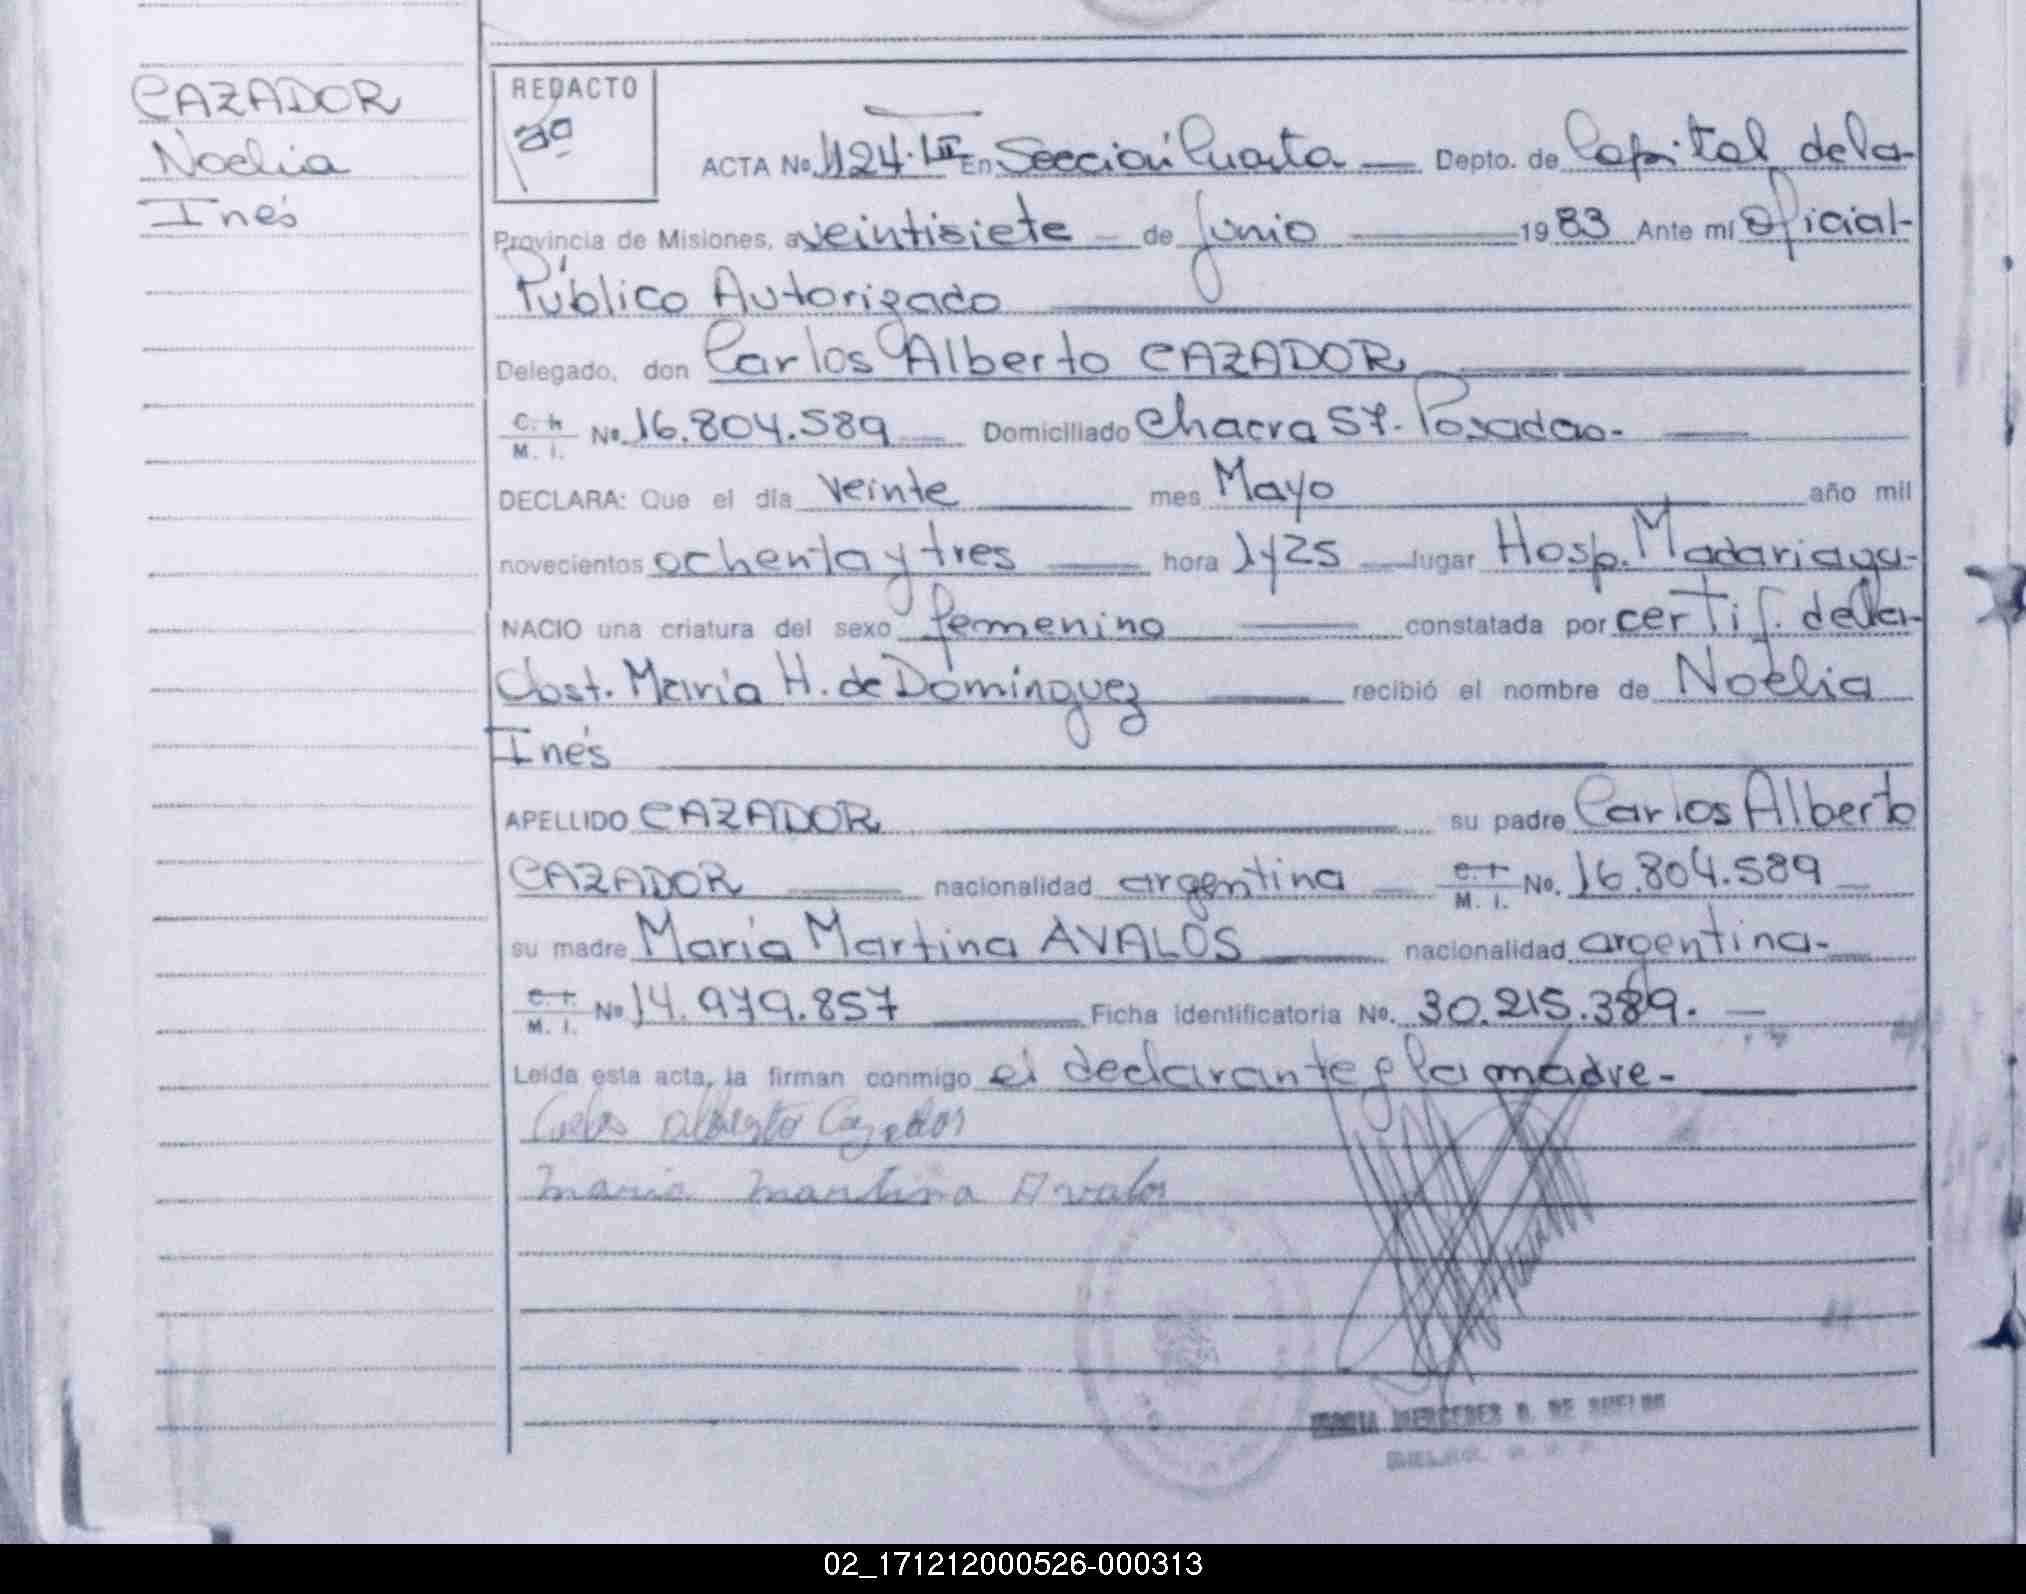 CAZADOR
Noelia
Inés
REDACTO
ACTA No. 1124. III En Sección Cuarta — Depto. de Capital de la-
Provincia de Misiones, a veintisiete — de Junio — 1983 Ante mí Oficial-
Público Autorizado
Delegado, don Carlos Alberto CAZADOR
C. I. M. I. No. 16.804.589 Domiciliado Chacra 57. Posadas.-
DECLARA: Que el día veinte mes Mayo año mil
novecientos ochenta y tres hora 1y25 lugar Hosp. Madariaga-
NACIO una criatura del sexo femenino constatada por certif. de la-
Obst. María H. de Dominguez recibió el nombre de Noelia
Inés
APELLIDO CAZADOR su padre Carlos Alberto
CAZADOR nacionalidad argentina C. I. M. I. No. 16.804.589
su madre María Martina AVALOS nacionalidad argentina-
C. I. M. I. No 14.979.857 Ficha identificatoria No. 30.215.389.-
Leída esta acta, la firman conmigo el declarante y la madre-
Carlos Alberto Cazador
Maria Martina Avalos
MARIA MERCEDES
02_171212000526-000313